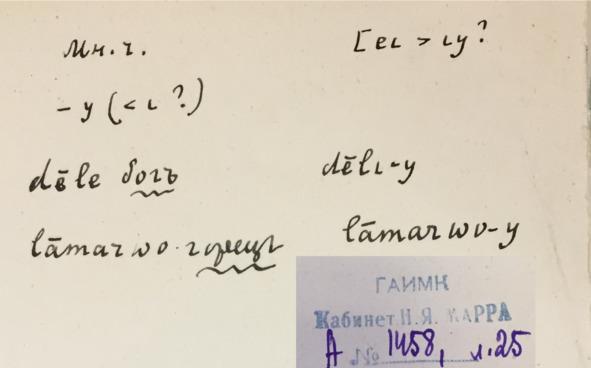 Мн. ч. [eι > ιy?
- y (< ι ?)
dēle богъ dēlι-y
lāmarwo горецъ lāmarwo-y
ГАИМК
Кабинет Н.Я. МАРРА
А № 1458, л. 25